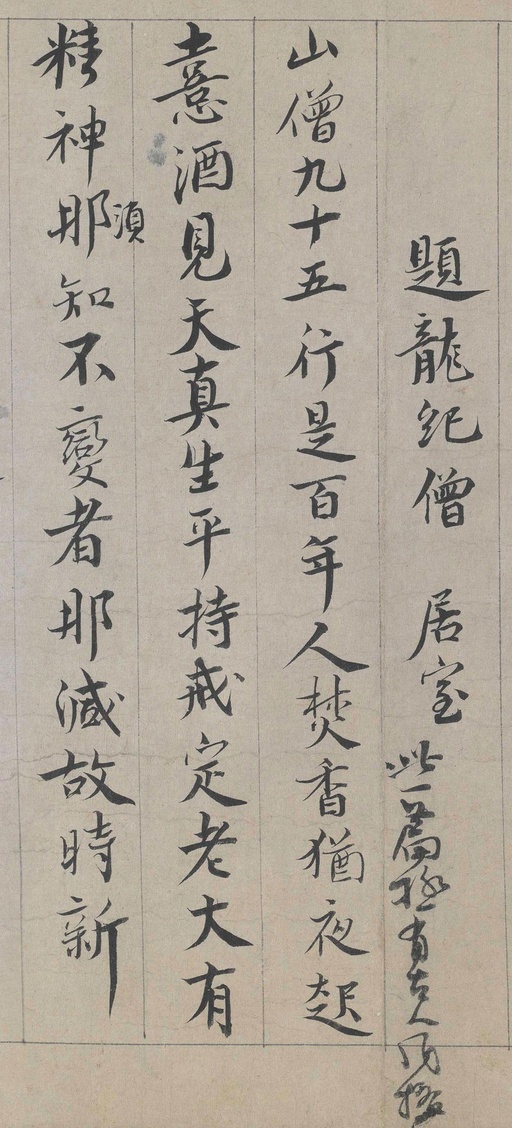 題龍紀僧居室此一篇極有古人風格
山僧九十五行是百年人焚香猶夜起
憙酒見天真生平持戒定老大有
精神那須知不變者那減故時新